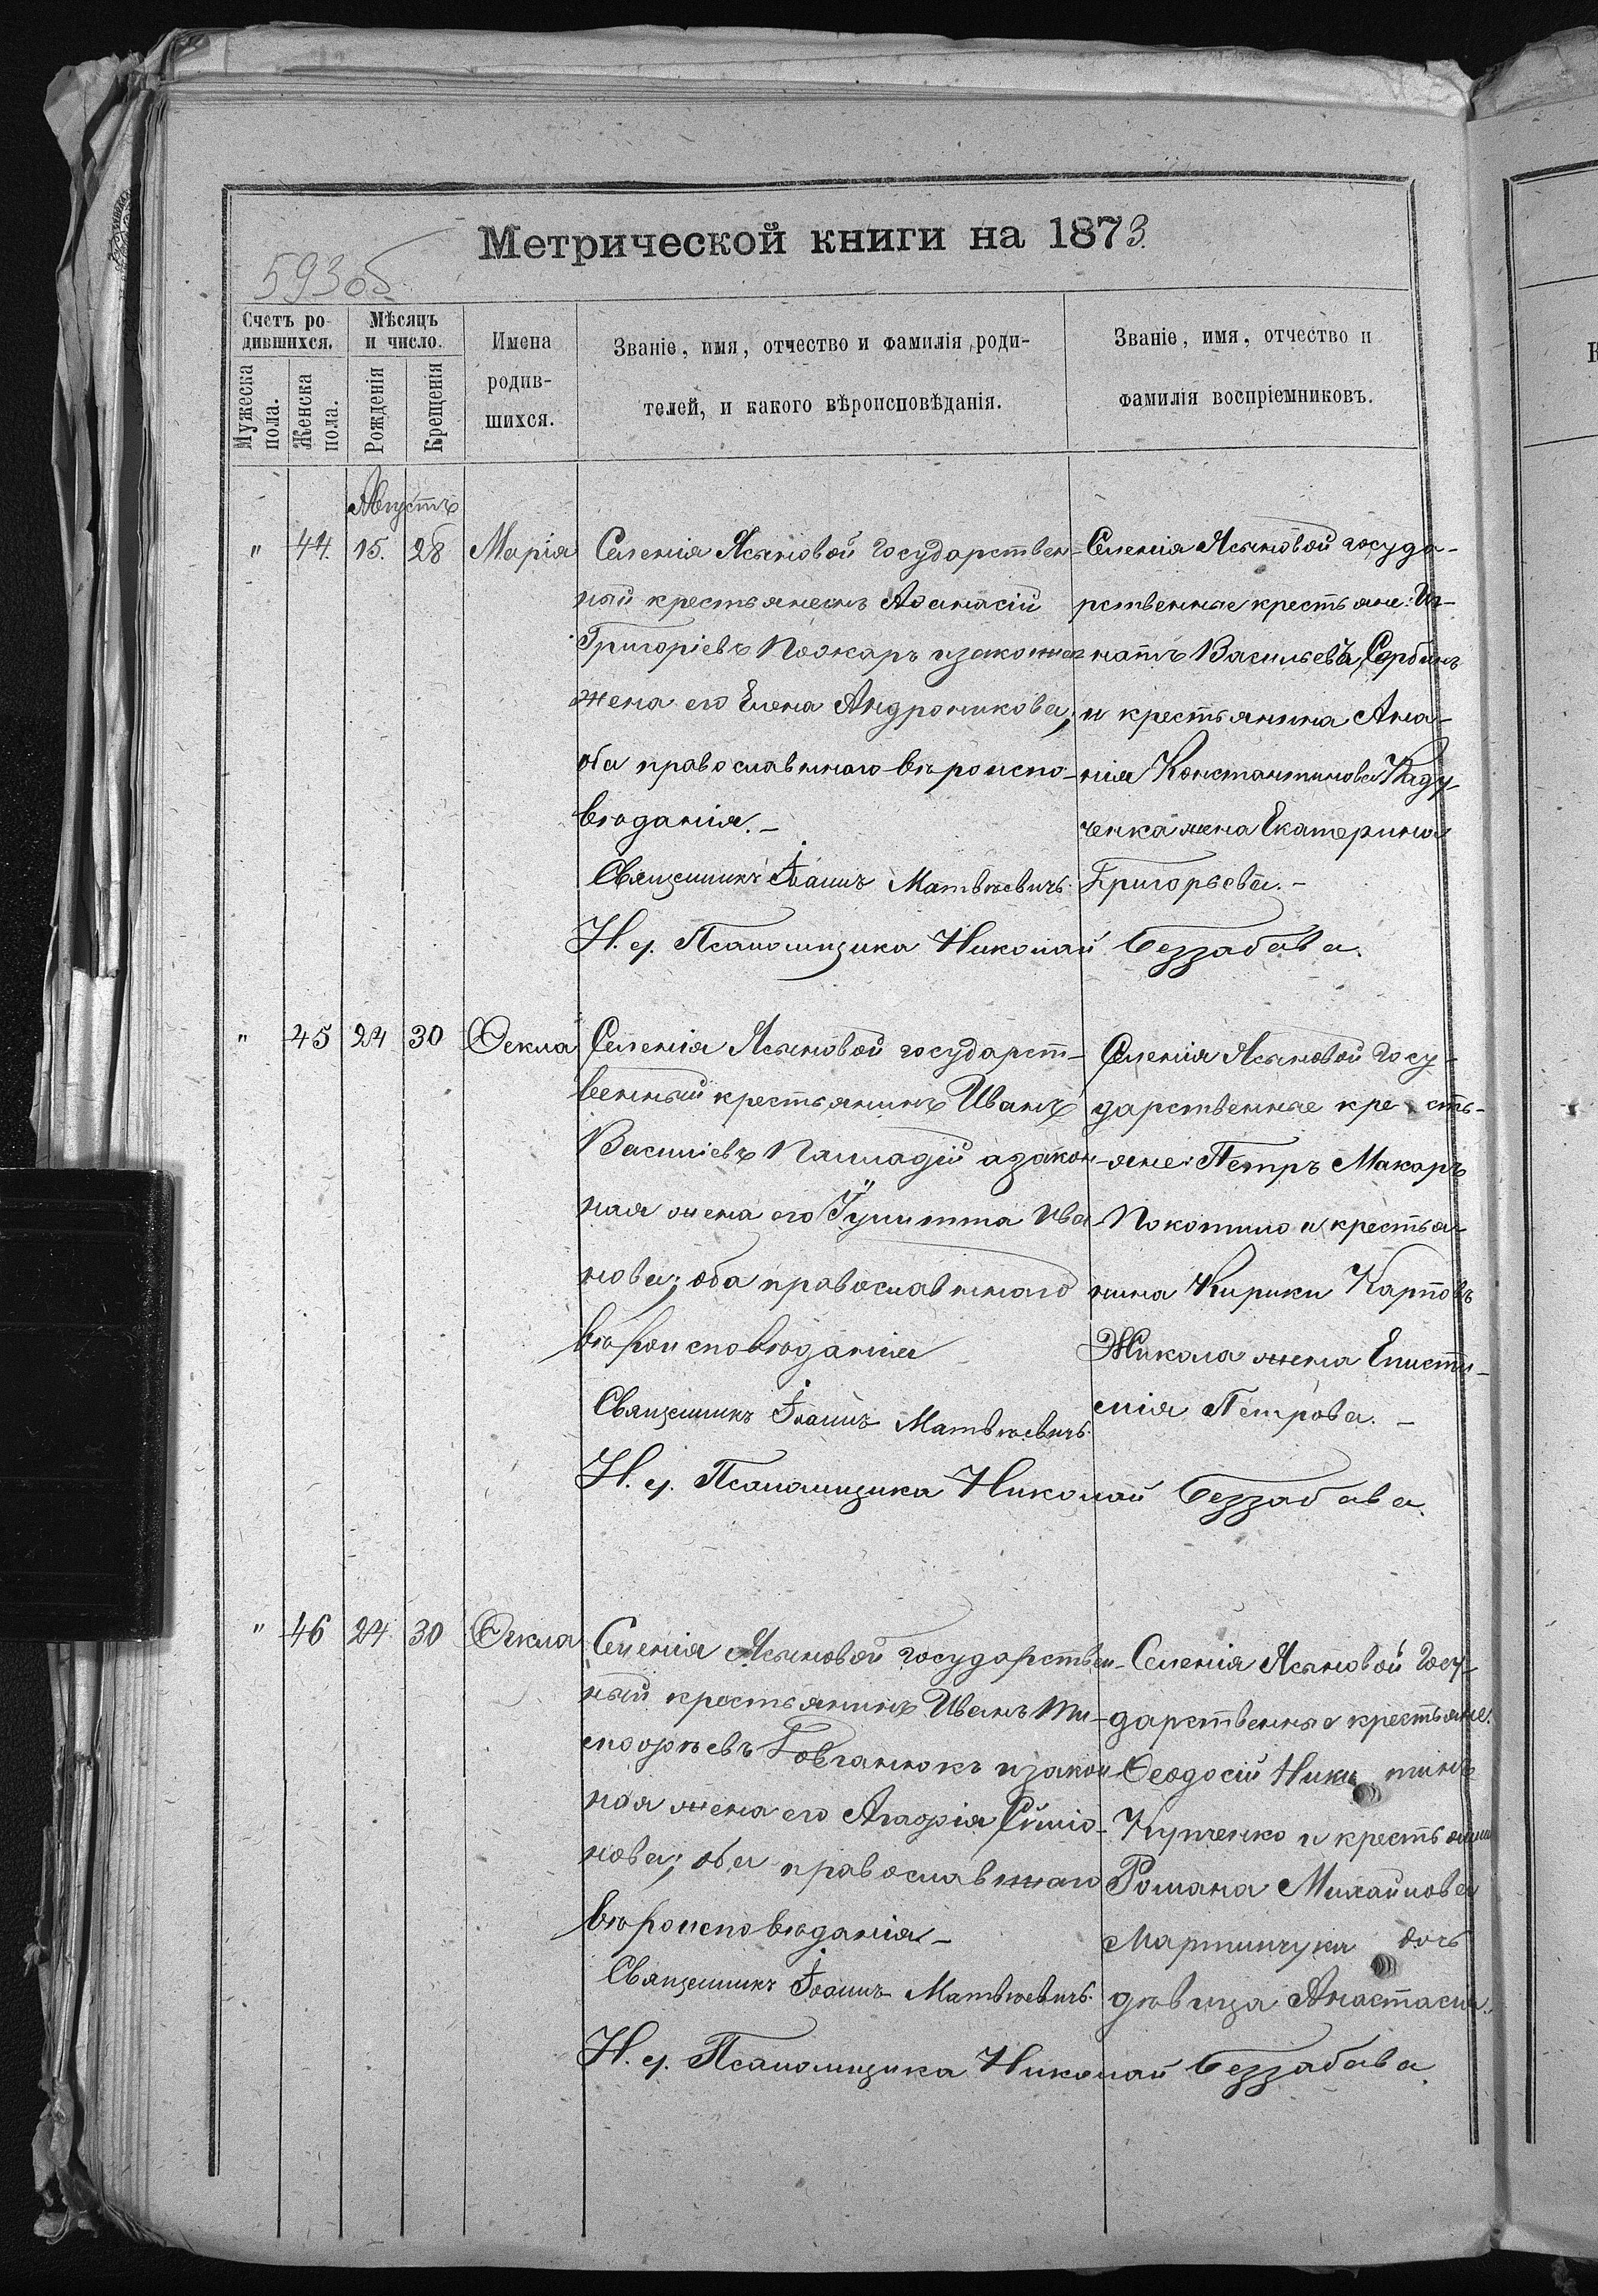 Метрической книги на 1873.
593об
Счетъ ро-
дившихся.
Мѣсяцъ
и число.
Мужеска
пола.
Женска
пола.
Рожденія
Крещенія
Имена
родив-
шихся.
Званіе, имя, отчество и фамилія роди-
телей, и какого вѣроисповѣданія.
Званіе, имя, отчество и
фамилія воспріемниковъ.
Августъ
" 44. 15. 28 Марія
Селенія Ясыновой государствен-
ный крестьянинъ Аѳанасій
Григоріевъ Пожаръ и законная
жена его Елена Андроникова;
оба православнаго вѣроиспо-
вѣданія.-
Священникъ Іоаннъ Матвѣевичъ.
Селенія Ясыновой госуда-
рственные крестьяне: Иг-
натъ Васильевъ Сербинъ
и крестьянина Ана-
нія Константинова
ченка жена Екатерина
Григорьева.-
И. д. Псаломщика Николай Беззабава.
" 45 24 30 Ѳекла
Селенія Ясыновой государст-
венный крестьянинъ Иванъ
Василіевъ Палладій а закон-
ная жена его Іулитта Ива-
нова; оба православнаго
вѣроисповѣданія
Священникъ Іоаннъ Матвѣевичъ.
Селенія Ясыновой госу-
дарственные кресть-
яне: Петръ Макаръ
Покотило и крестья-
нина Кирики Карповъ
Жикола жена Еписти-
мія Петрова.-
И. д. Псаломщика Николай Беззабава.
" 46 24 30 Ѳекла
Селенія Ясыновой государствен-
ный крестьянинъ Иванъ Ти-
моѳѣевъ Говганюкъ и закон-
ная жена его Агафія
нова; оба православнаго
вѣроисповѣданія-
Священникъ Іоаннъ Матвѣевичъ.
Селенія Ясыновой госу-
дарственные крестьяне.
Ѳеодосій Никитинъ
Купченко и крестьянина
Романа Михайлова
Мартинчука дочь
дѣвица Анастасія.
И. д. Псаломщика Николай Беззабава.